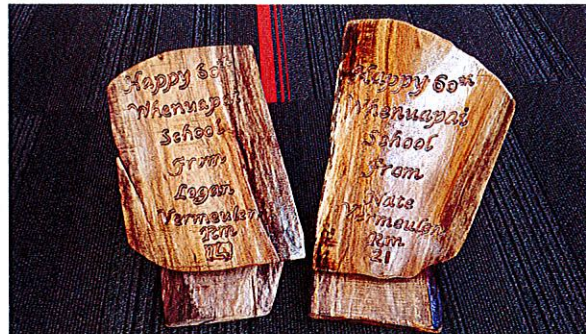 Happy 60th
Whenuapai
School
from
Logan
Vermeulen
Rm
Happy 60th
Whenuapai
School
From
Nate
Vermeulen
Rm
21